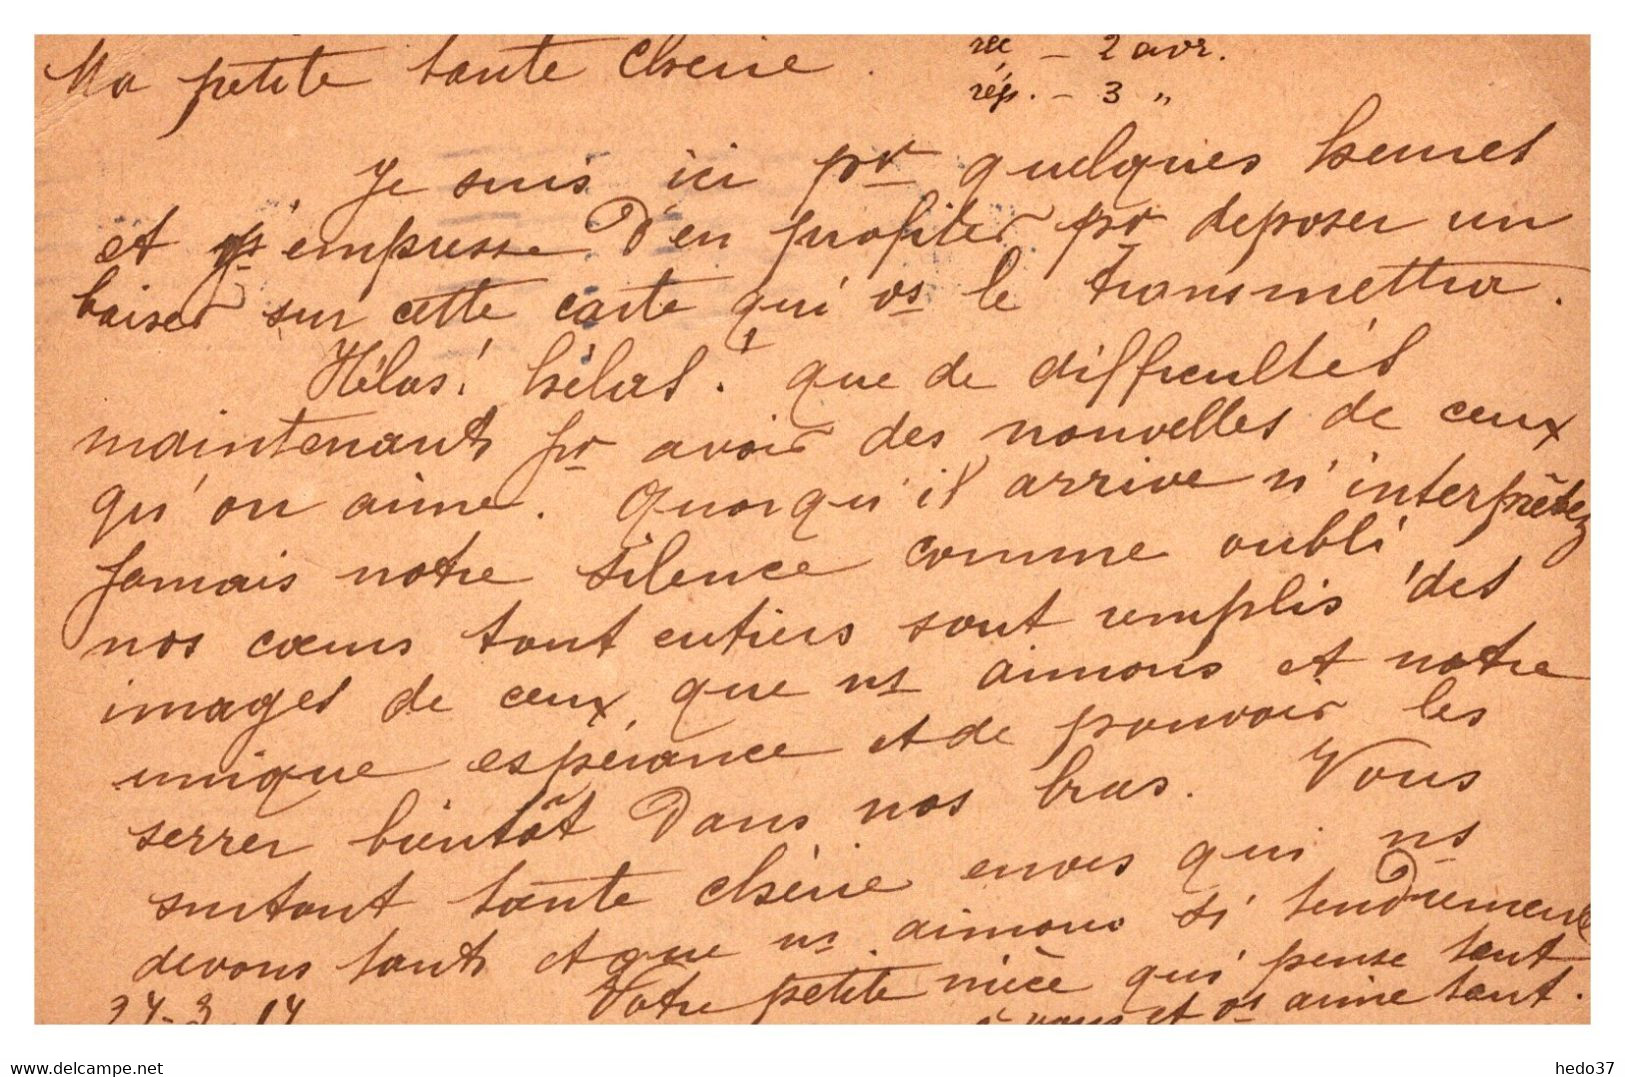 Ma petite tante chérie.
reç - 2 avr.
rép. - 3 "
Je suis ici pr quelques heures
et m'empresse d'en profiter pr deposer un
baiser sur cette carte qui vs le transmettra.
Hélas! hélas! que de difficultés
maintenant pr avoir des nouvelles de ceux
qu'on aime. Quoiqu'il arrive n'interprêtez
jamais notre silence comme oubli
nos cœurs tout entiers sont remplis des
images de ceux que ns aimons et notre
unique espérance et de pouvoir les
serrer bientôt dans nos bras. Vous
surtout tante chérie envers qui ns
devons tant et que ns aimons si tendrement
Votre petite nièce qui pense tant
à vous et vs aime tant.
www.delcampe.net
hedo37